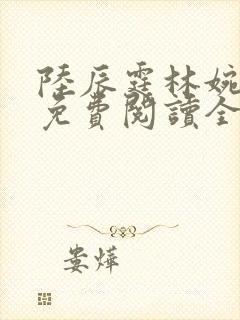 陸辰霆林婉
免費閱讀全
婁燁